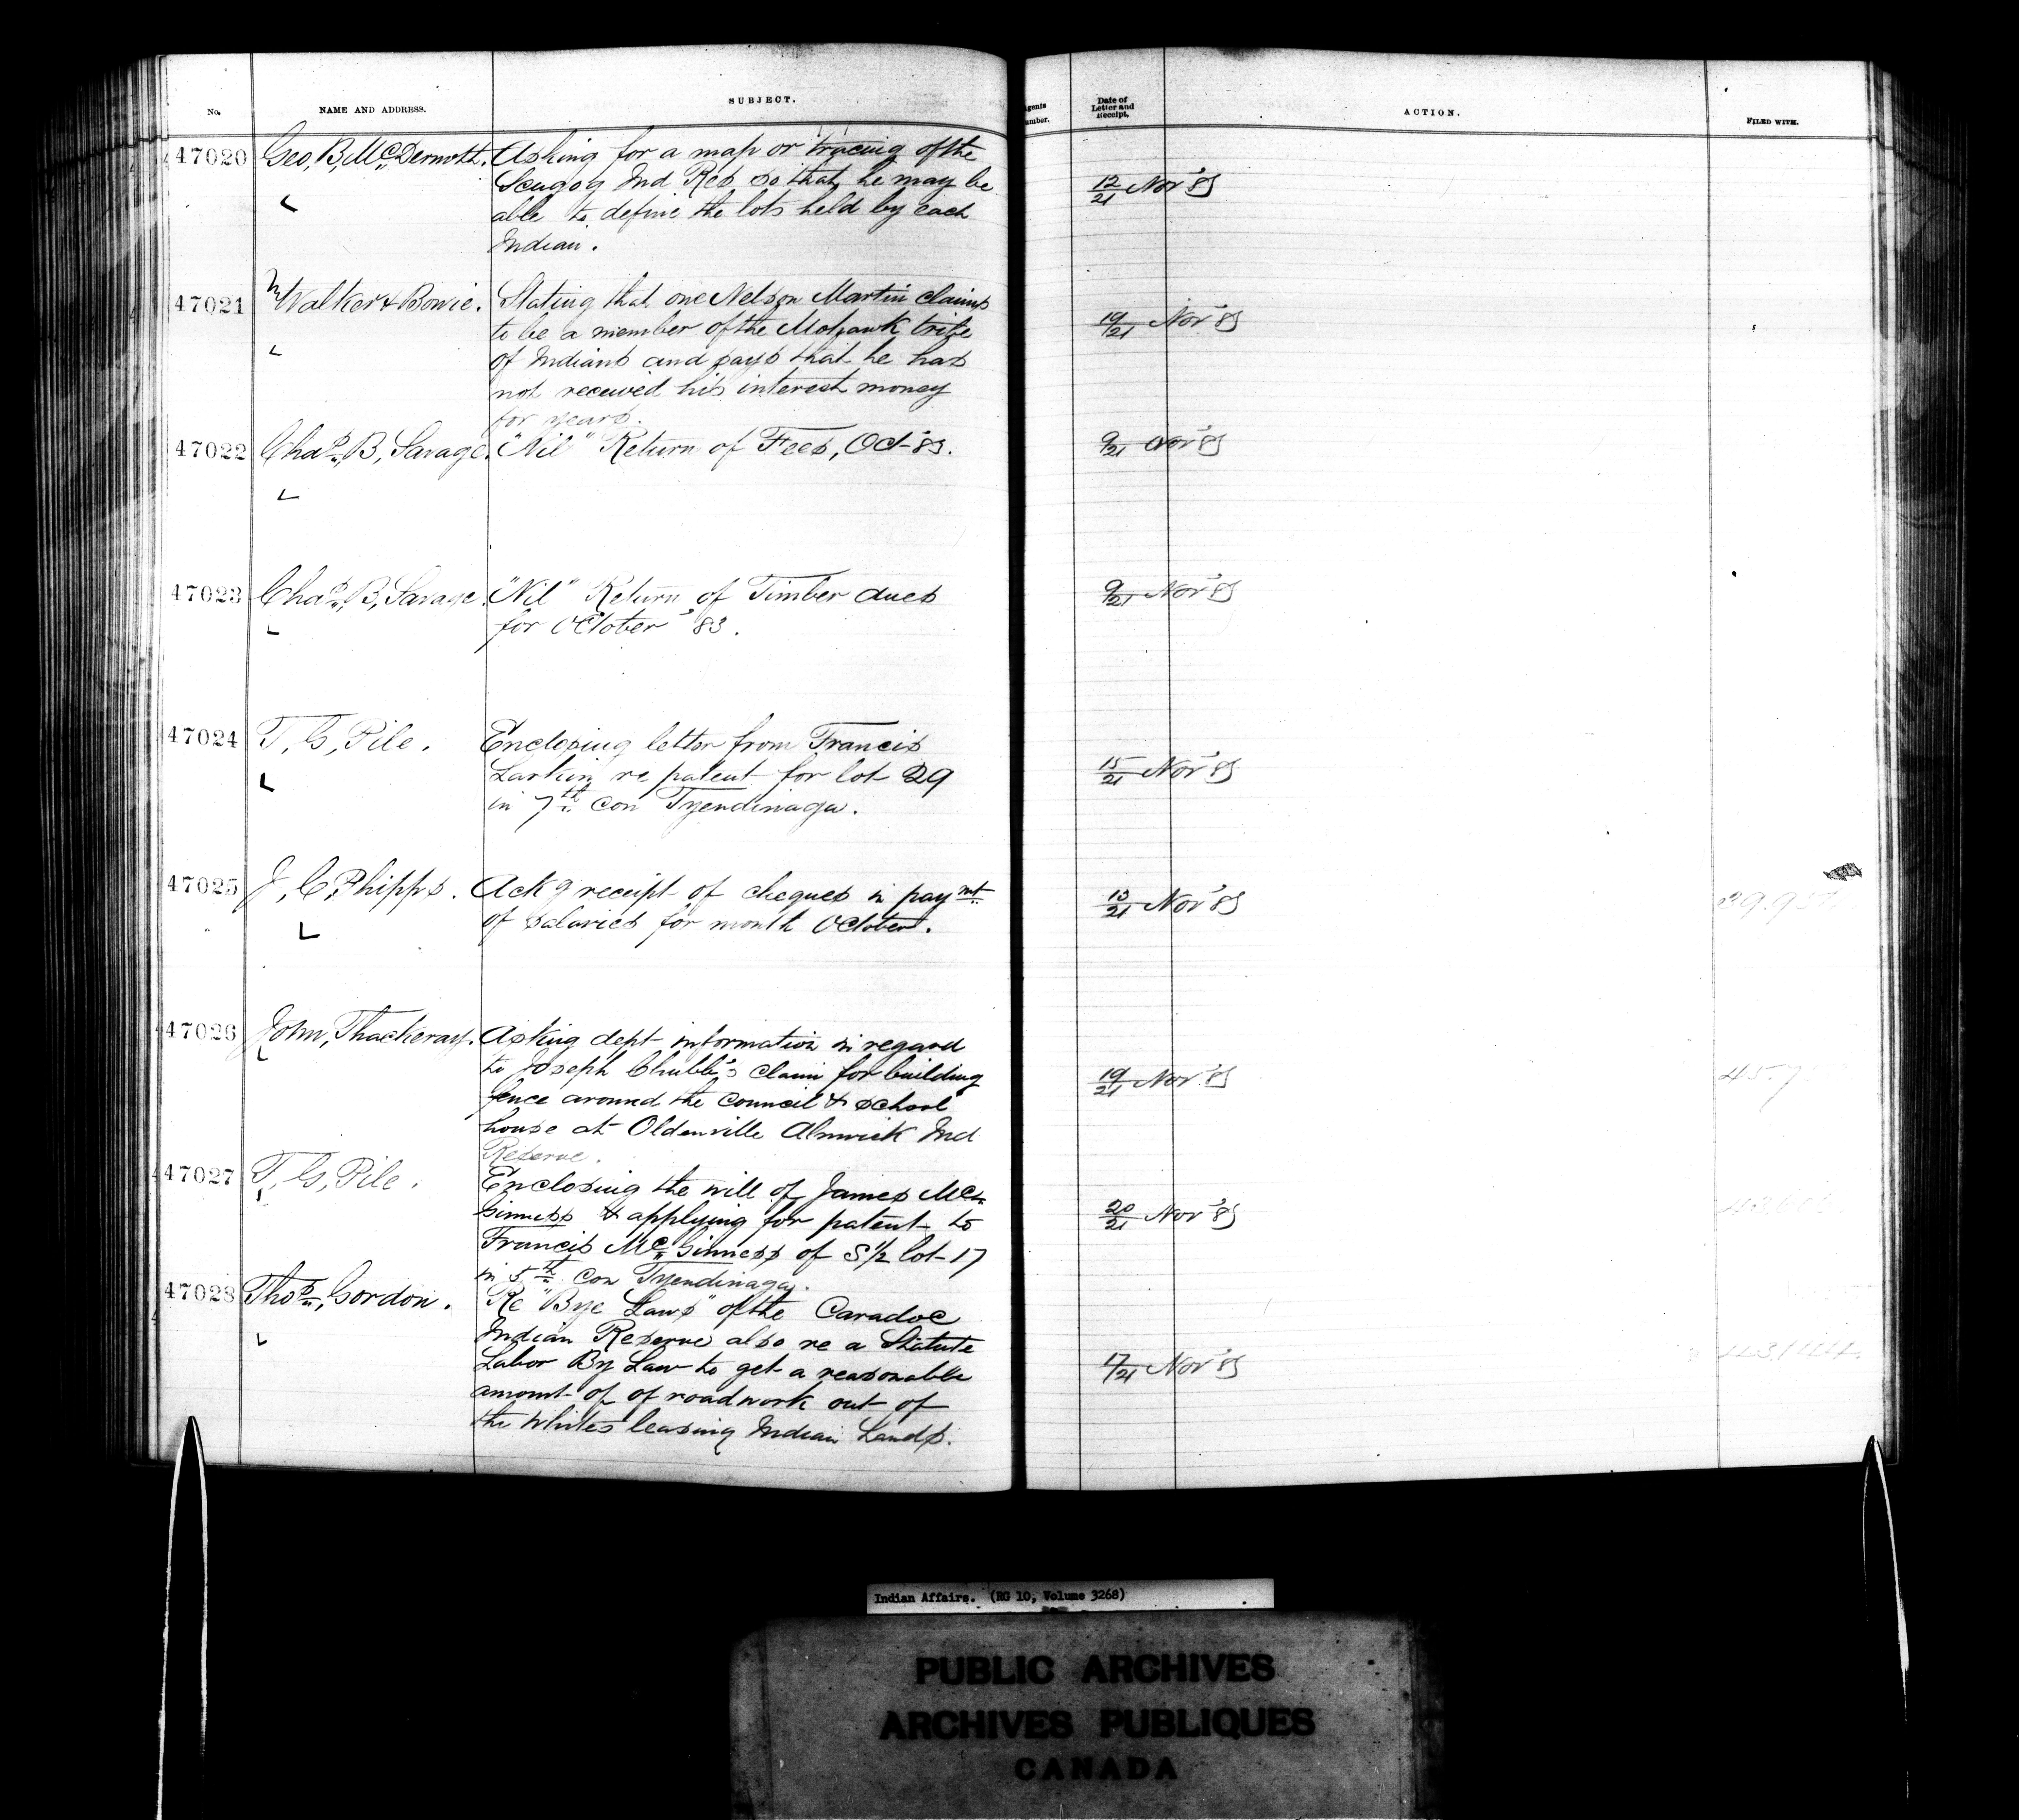 No. NAME AND ADDRESS. SUBJECT. Agents Number. Date of Letter and Receipt. ACTION. FILED WITH.
47020 Geo, B, McDermott. Asking for a map or tracing of the
Scugog Ind Res so that he may be 12/21 Nov '83
able to define the lots held by each
Indian.
47021 Walker & Bowie. Stating that one Nelson Martin claims
to be a member of the Mohawk tribe 19/21 Nov '83
of Indians and says that he has
not received his interest money
for years.
47022 Chas, B, Savage. "Nil" Return of Fees, Oct '83. 9/21 Nov '83
47023 Chas, B, Savage. "Nil" Return of Timber dues 9/21 Nov '83
for October '83.
47024 T, G, Pile. Enclosing letter from Francis
Larkin re patent for lot 29 15/21 Nov '83
in 7th con Tyendinaga.
47025 J, C, Phipps. Ackg receipt of cheques in paymt 13/21 Nov '83
of salaries for month October.
47026 John, Thackeray. Asking dept information in regard
to Joseph Chubb's claim for building 19/21 Nov '83
fence around the council & school
house at Oldenville Alnwick Ind
Reserve.
47027 T, G, Pile. Enclosing the will of James Mc
Ginness & applying for patent to 20/21 Nov '83
Francis McGinness of S 1/2 lot 17
in 5th con Tyendinaga.
47028 Thos, Gordon. Re "Bye Laws" of the Caradoc
Indian Reserve also re a Statute
Labor By Law to get a reasonable 17/21 Nov '83
amount of of roadwork out of
the Whites leasing Indian Lands.
Indian Affairs. (RG 10, Volume 3268)
PUBLIC ARCHIVES
ARCHIVES PUBLIQUES
CANADA